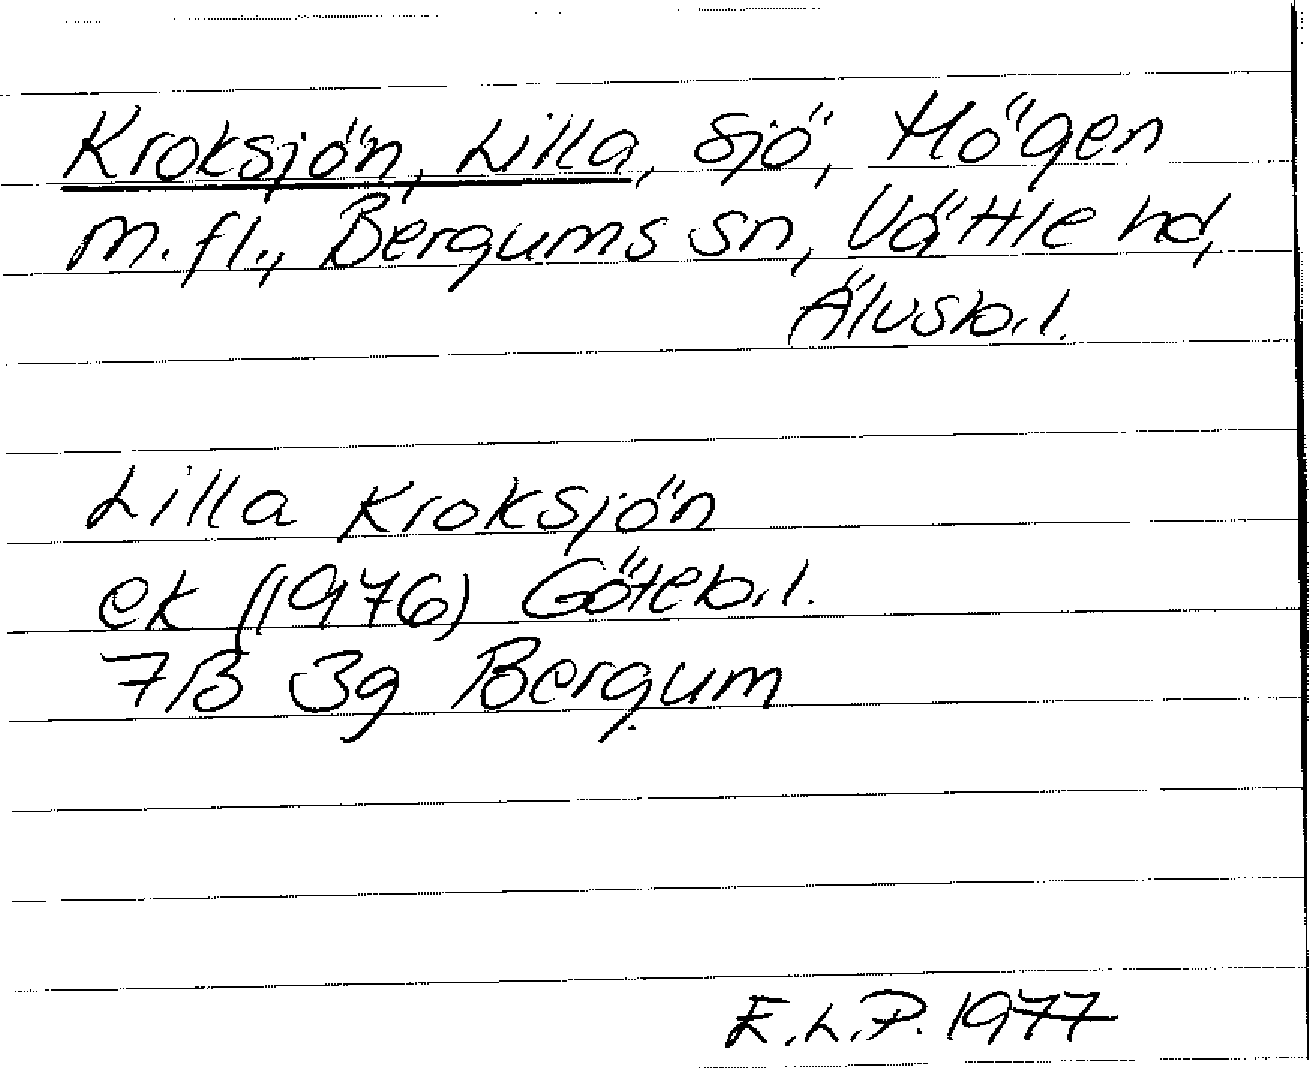 Kroksjön, Lilla, sjö, Högen
m.fl., Bergums sn, Vättle hd,
Älvsb.l.
Lilla Kroksjön
ek (1976) Göteb.l.
7B 3g Bergum
E.L.P. 1977